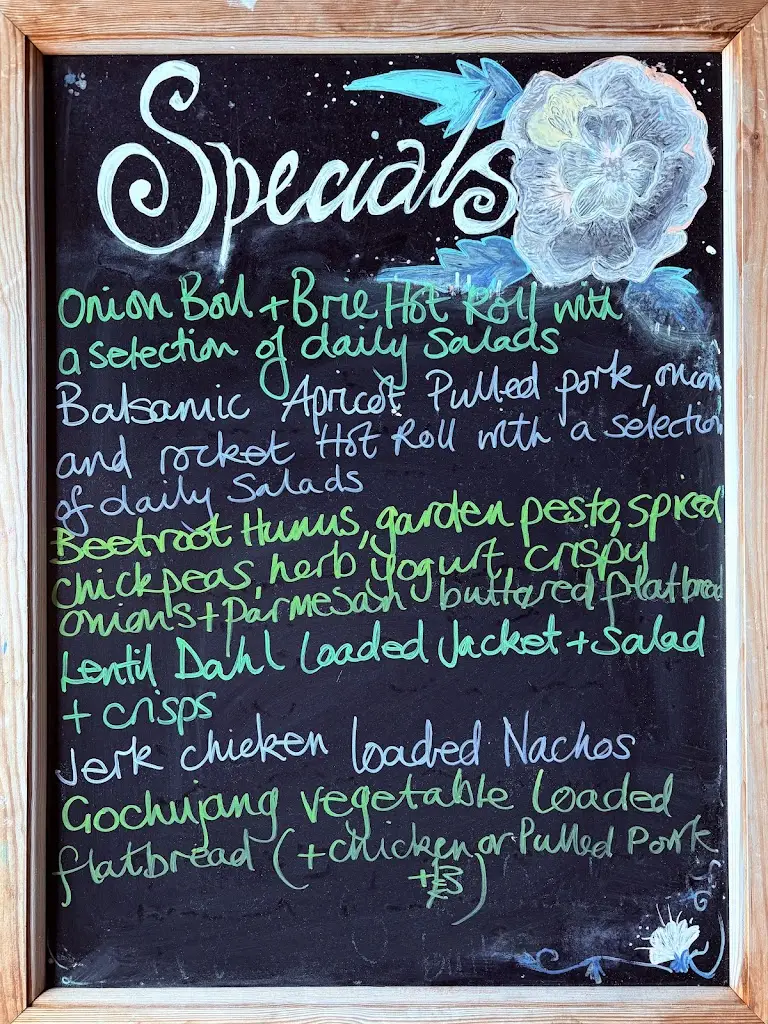 Specials
Onion Boil + Brie Hot Roll with
a selection of daily Salads
Balsamic Apricot Pulled pork, onion
and rocket Hot Roll with a selection
of daily Salads
Beetroot Humus, garden pesto, spiced
chickpeas, herb yogurt, crispy
onions + parmesan buttered flatbread
Lentil Dahl Loaded Jacket + Salad
+ crisps
Jerk chicken loaded Nachos
Gochujang vegetable loaded
flatbread (+ chicken or Pulled Pork
+£3)